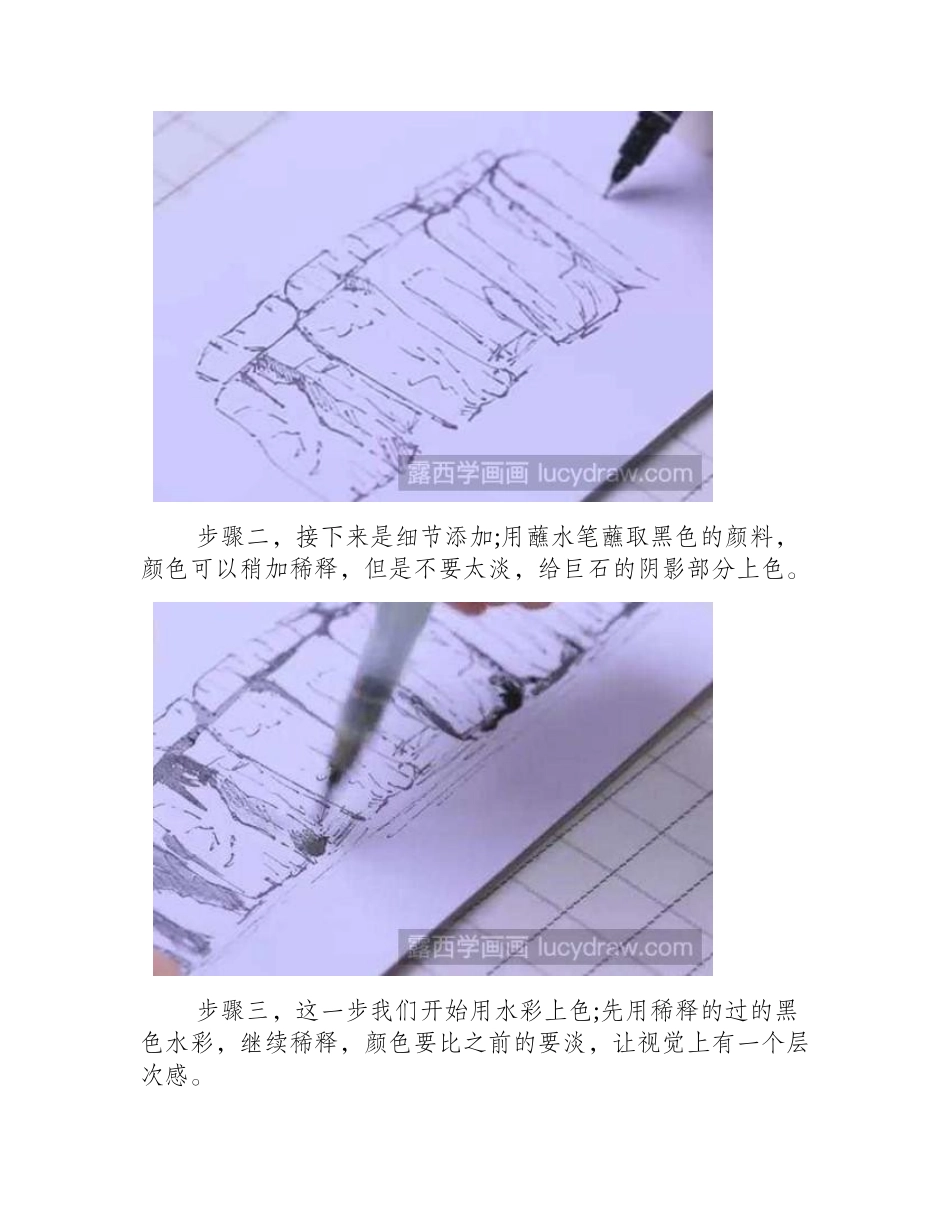 露西学画画 lucydraw.com
步骤二，接下来是细节添加;用蘸水笔蘸取黑色的颜料，
颜色可以稍加稀释，但是不要太淡，给巨石的阴影部分上色。
露西学画画 lucydraw.com
步骤三，这一步我们开始用水彩上色;先用稀释的过的黑
色水彩，继续稀释，颜色要比之前的要淡，让视觉上有一个层
次感。